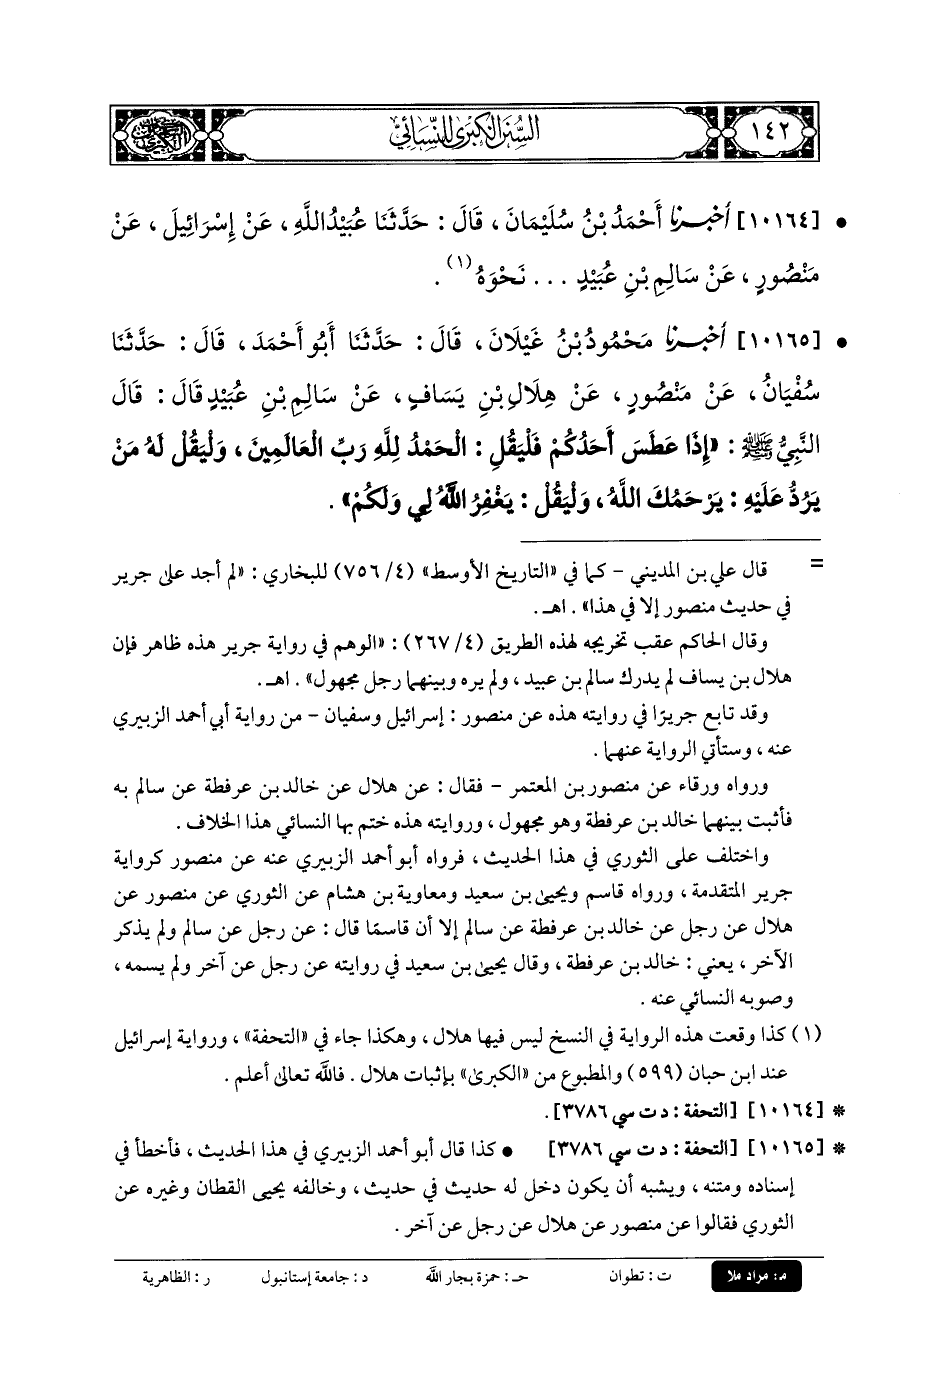 ١٤٢
السُّنَنُ الكِبْرَى للنَّسَائِي
• [١٠١٦٤] أخبرنا أَحْمَدُ بْنُ سُلَيْمَانَ ، قَالَ : حَدَّثَنَا عُبَيْدُ اللَّهِ ، عَنْ إِسْرَائِيلَ ، عَنْ
مَنْصُورٍ ، عَنْ سَالِمِ بْنِ عُبَيْدٍ . . . نَحْوَهُ (١) .
• [١٠١٦٥] أخبرنا مَحْمُودُ بْنُ غَيْلَانَ ، قَالَ : حَدَّثَنَا أَبُو أَحْمَدَ ، قَالَ : حَدَّثَنَا
سُفْيَانُ ، عَنْ مَنْصُورٍ ، عَنْ هِلَالِ بْنِ يَسَافٍ ، عَنْ سَالِمِ بْنِ عُبَيْدٍ قَالَ : قَالَ
النَّبِيُّ ﷺ : «إِذَا عَطَسَ أَحَدُكُمْ فَلْيَقُلِ : الْحَمْدُ لِلَّهِ رَبِّ الْعَالَمِينَ ، وَلْيَقُلْ لَهُ مَنْ
يَرُدُّ عَلَيْهِ : يَرْحَمُكَ اللَّهُ ، وَلْيَقُلْ : يَغْفِرُ اللَّهُ لِي وَلَكُمْ» .
= قال علي بن المديني - كما في «التاريخ الأوسط» (٤/ ٧٥٦) للبخاري : «لم أجد على جرير
في حديث منصور إلا في هذا» . اهـ .
وقال الحاكم عقب تخريجه لهذه الطريق (٤/ ٢٦٧) : «الوهم في رواية جرير هذه ظاهر فإن
هلال بن يساف لم يدرك سالم بن عبيد ، ولم يره وبينهما رجل مجهول» . اهـ .
وقد تابع جريرًا في روايته هذه عن منصور : إسرائيل وسفيان - من رواية أبي أحمد الزبيري
عنه ، وستأتي الرواية عنهما .
ورواه ورقاء عن منصور بن المعتمر - فقال : عن هلال عن خالد بن عرفطة عن سالم به
فأثبت بينهما خالد بن عرفطة وهو مجهول ، وروايته هذه ختم بها النسائي هذا الخلاف .
واختلف على الثوري في هذا الحديث ، فرواه أبو أحمد الزبيري عنه عن منصور كرواية
جرير المتقدمة ، ورواه قاسم ويحيى بن سعيد ومعاوية بن هشام عن الثوري عن منصور عن
هلال عن رجل عن خالد بن عرفطة عن سالم إلا أن قاسمًا قال : عن رجل عن سالم ولم يذكر
الآخر ، يعني : خالد بن عرفطة ، وقال يحيى بن سعيد في روايته عن رجل عن آخر ولم يسمه ،
وصوبه النسائي عنه .
(١) كذا وقعت هذه الرواية في النسخ ليس فيها هلال ، وهكذا جاء في «التحفة» ، ورواية إسرائيل
عند ابن حبان (٥٩٩) والمطبوع من «الكبرى» بإثبات هلال . فالله تعالى أعلم .
* [١٠١٦٤] [التحفة : د ت سي ٣٧٨٦] .
* [١٠١٦٥] [التحفة : د ت سي ٣٧٨٦] • كذا قال أبو أحمد الزبيري في هذا الحديث ، فأخطأ في
إسناده ومتنه ، ويشبه أن يكون دخل له حديث في حديث ، وخالفه يحيى القطان وغيره عن
الثوري فقالوا عن منصور عن هلال عن رجل عن آخر .
م : مراد ملا ت : تطوان حـ : حمزة بجار الله د : جامعة إستانبول ر : الظاهرية